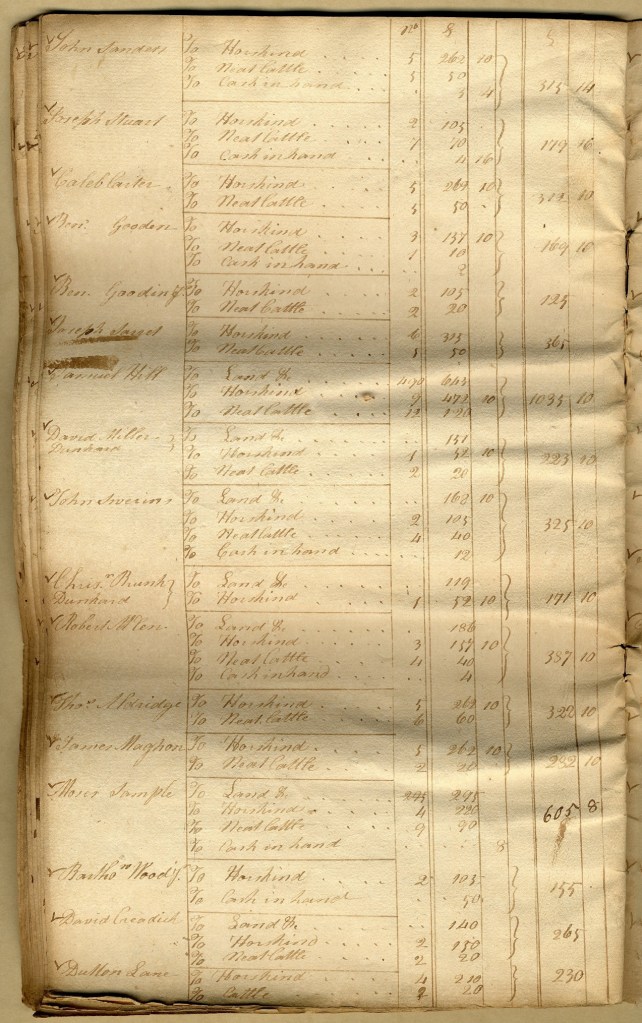 no £ £
John Sanders To Horskind 5 262 10
To Neat Cattle 5 50
To Cash in hand 3 4 315 14
Joseph Stuart To Horskind 2 105
To Neat Cattle 7 70
To Cash in hand 4 16 179 16
Caleb Carter To Horskind 5 262 10
To Neat Cattle 5 50 312 10
Ben. Gooden To Horskind 3 157 10
To Neat Cattle 1 10
To Cash in hand 2 169 10
Ben. Gooden To Horskind 2 105
To Neat Cattle 2 20 125
Joseph To Horskind 6 315
To Neat Cattle 5 50 365
Samuel Hill To Land &c 490 643
To Horskind 9 472 10
To Neat Cattle 12 120 1035 10
David Miller To Land &c 151
Dunkard To Horskind 1 52 10
To Neat Cattle 2 20 223 10
John To Land &c 162 10
To Horskind 2 105
To Neat Cattle 4 40
To Cash in hand 12 325 10
Chrisr. Brunk To Land &c 119
Dunkard To Horskind 1 52 10 171 10
Robert To Land &c 186
To Horskind 3 157 10
To Neat Cattle 4 40
To Cash in hand 4 387 10
Thos. Aldridge To Horskind 5 262 10
To Neat Cattle 6 60 322 10
James Maghon To Horskind 5 262 10
To Neat Cattle 2 20 282 10
Moses Sample To Land &c 295 295
To Horskind 4 220
To Neat Cattle 9 90
To Cash in hand 8 605 8
Bartho. To Horskind 2 105
To Cash in hand 50 155
David To Land &c 140
To Horskind 2 150
To Neat Cattle 2 20 265
Dutton Lane To Horskind 4 210
To Cattle 2 20 230